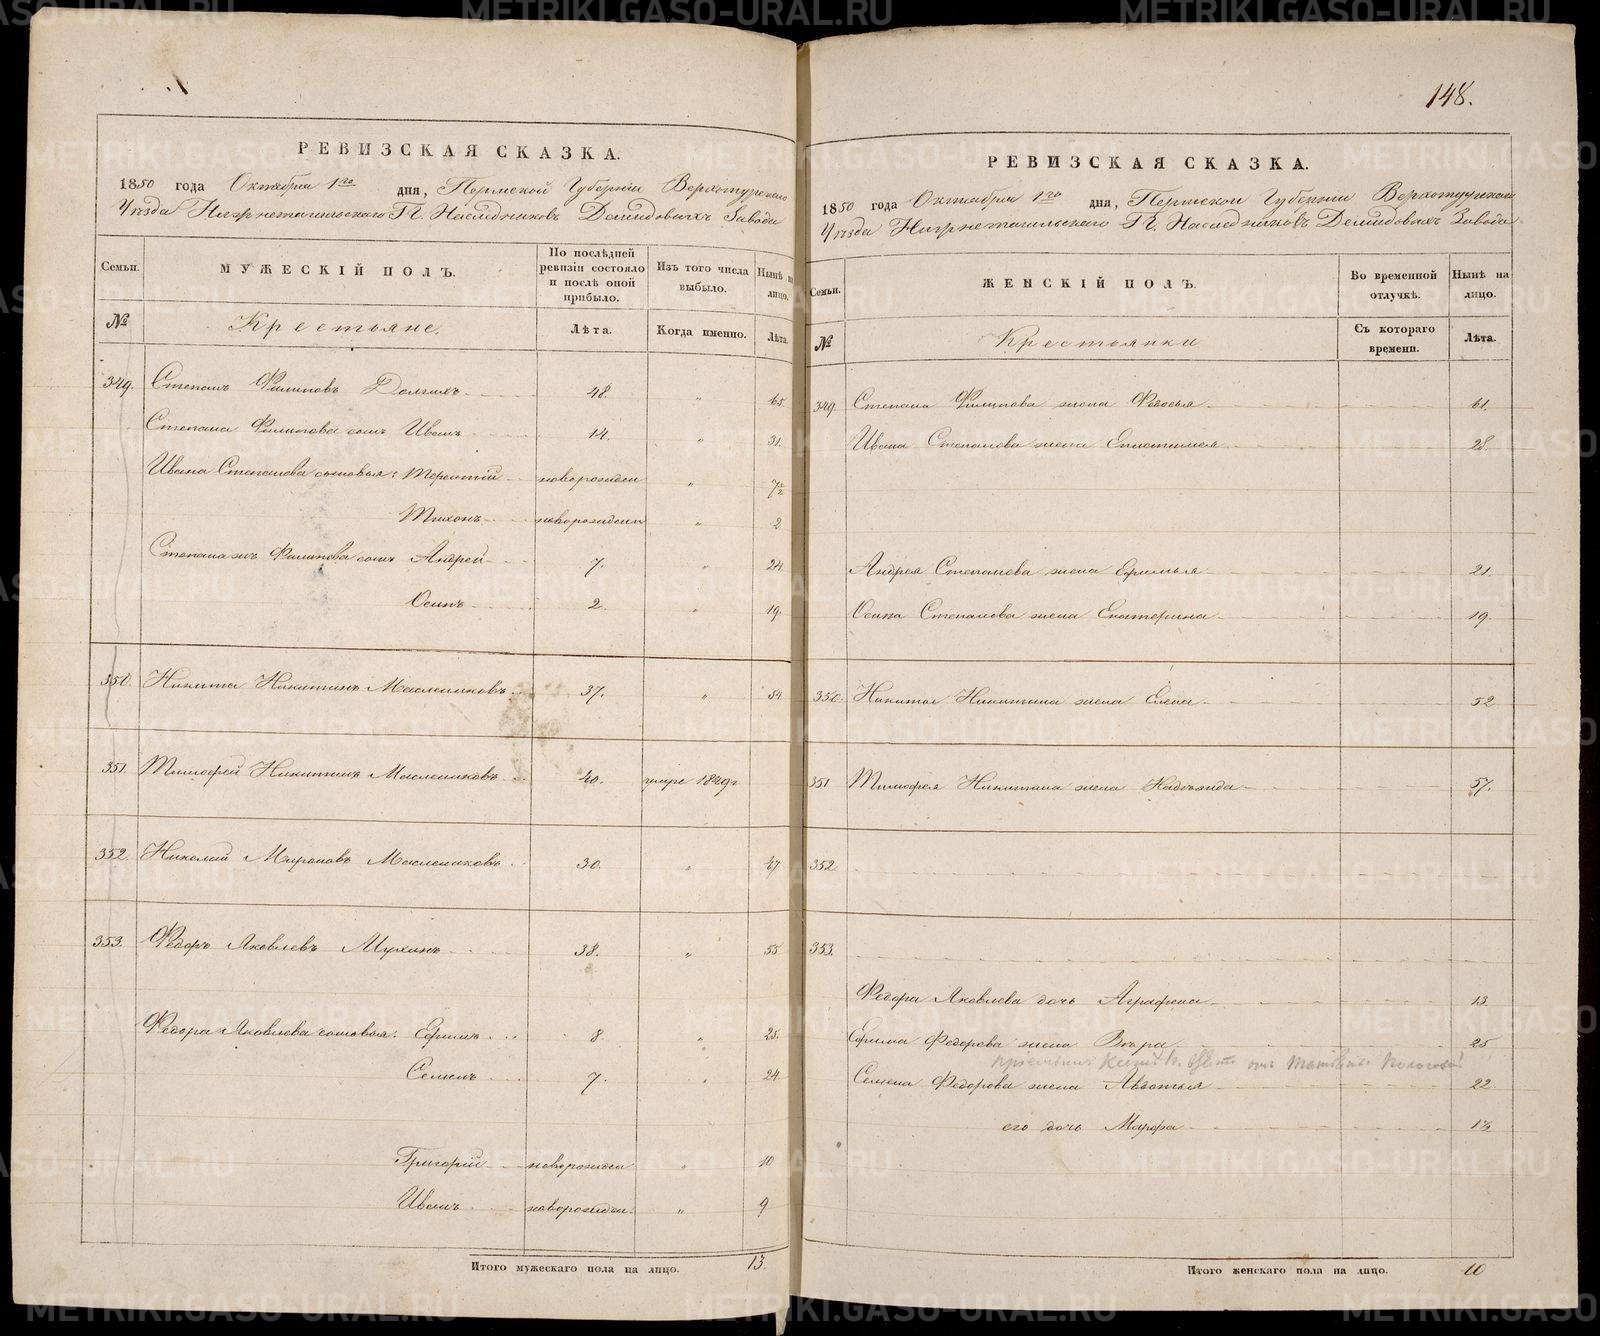 РЕВИЗСКАЯ СКАЗКА.
1850 года Октября 1го дня, Пермской Губернiи Верхотурскаго
Уѣзда Нижнетагильскаго Г. Наслѣдниковъ Демидовыхъ Завода
Семьи.
МУЖЕСКIЙ ПОЛЪ.
По послѣдней ревизiи состояло и послѣ оной прибыло.
Изъ того числа выбыло.
Нынѣ на лицо.
№
Крестьяне.
Лѣта.
Когда именно.
Лѣта.
349. Степанъ Филиповъ Долгихъ 48. " 65.
Степана Филипова сынъ Иванъ 14. " 31.
Ивана Степанова сыновья: Терентiй новорожден " 7½
Тихонъ новорожденъ " 2
Степана жъ Филипова сынъ Андрей 7. " 24.
Осипъ 2. " 19.
350. Никита Никитинъ Маслениковъ 37. " 54.
351. Тимофей Никитинъ Маслениковъ 40. умре 1849г
352. Николай Мироновъ Маслениковъ 30. " 47
353. Федоръ Яковлевъ Мухинъ 38. " 55
Федора Яковлева сыновья: Ефимъ 8. " 25.
Семенъ 7. " 24.
Григорiй новорожден " 10
Иванъ новорожден. " 9
Итого мужескаго пола на лицо. 13.
148.
РЕВИЗСКАЯ СКАЗКА.
1850 года Октября 1го дня, Пермской Губернiи Верхотурскаго
Уѣзда Нижнетагильскаго Г. Наслѣдниковъ Демидовыхъ Завода
Семьи.
ЖЕНСКIЙ ПОЛЪ.
Во временной отлучкѣ.
Нынѣ на лицо.
№
Крестьянки
Съ котораго времени.
Лѣта.
349. Степана Филипова жена Федосья 61.
Ивана Степанова жена Епистимея 28.
Андрея Степанова жена Ефимья 21.
Осипа Степанова жена Екатерина 19.
350. Никиты Никитина жена Елена 52
351 Тимофея Никитина жена Надѣжда 57.
352.
353.
Федора Яковлева дочь Аграфена 13.
Ефима Федорова жена Вѣра 25
Семена Федорова жена Авдотья 22.
его дочь Марфа 1½
Итого женскаго пола на лицо. 10
METRIKI.GASO-URAL.RU